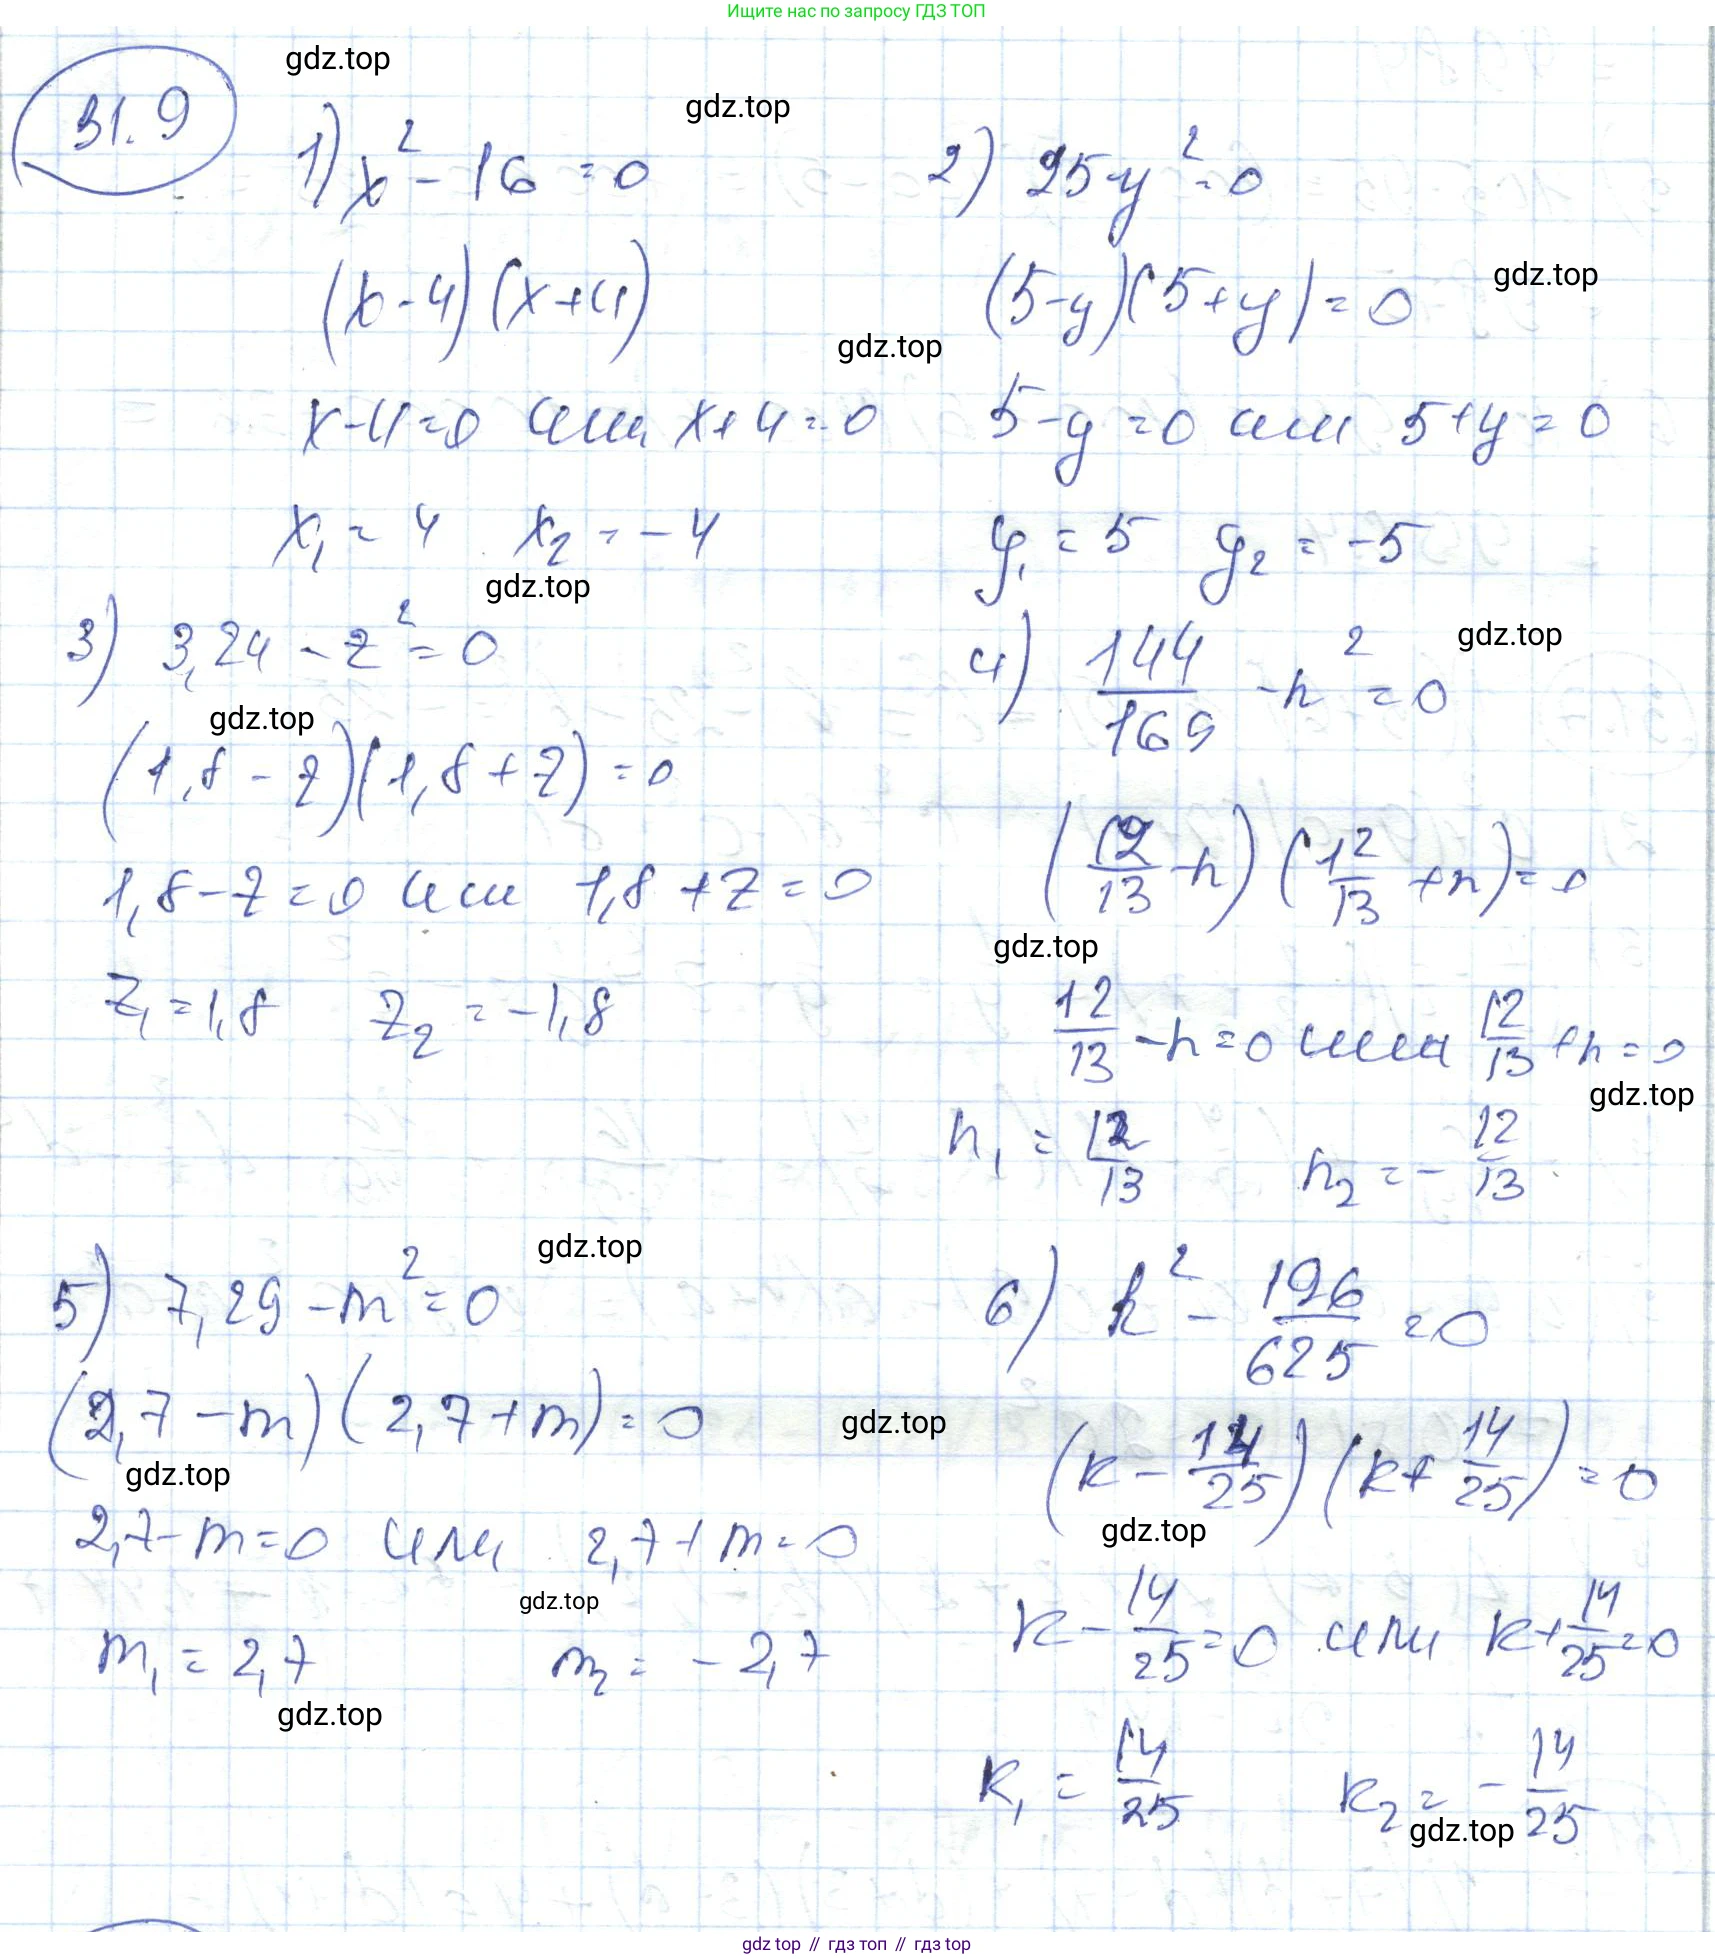 Ищите нас по запросу ГДЗ ТОП
31.9
gdz.top
gdz.top
1) x² - 16 = 0
(x - 4) (x + 4)
x - 4 = 0 или x + 4 = 0
x₁ = 4 x₂ = -4
gdz.top
2) 25 - y² = 0
gdz.top
(5 - y)(5 + y) = 0
gdz.top
5 - y = 0 или 5 + y = 0
y₁ = 5 y₂ = -5
3) 3,24 - z² = 0
gdz.top
(1,8 - z)(1,8 + z) = 0
1,8 - z = 0 или 1,8 + z = 0
z₁ = 1,8 z₂ = -1,8
4) 144/169 - n² = 0
gdz.top
(12/13 - n) (12/13 + n) = 0
gdz.top
12/13 - n = 0 или 12/13 + n = 0
gdz.top
n₁ = 12/13 n₂ = -12/13
5) 7,29 - m² = 0
gdz.top
(2,7 - m) (2,7 + m) = 0
gdz.top
gdz.top
2,7 - m = 0 или 2,7 + m = 0
gdz.top
m₁ = 2,7 m₂ = -2,7
gdz.top
6) k² - 196/625 = 0
(k - 14/25) (k + 14/25) = 0
gdz.top
k - 14/25 = 0 или k + 14/25 = 0
k₁ = 14/25 k₂ = -14/25
gdz.top
gdz top // гдз топ // гдз top